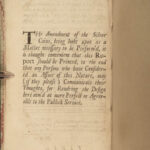 This Amendment of the Silver
Coins, being look upon as a
Matter necessary to be Perform'd, it
is thought convenient that this Re-
port should be Printed, to the end
that any Persons who have Consider'd
an Affair of this Nature, may
(if they please) Communicate their
Thoughts, for Rendring the Design
here aim'd at more Perfect or Agree-
able to the Publick Service.